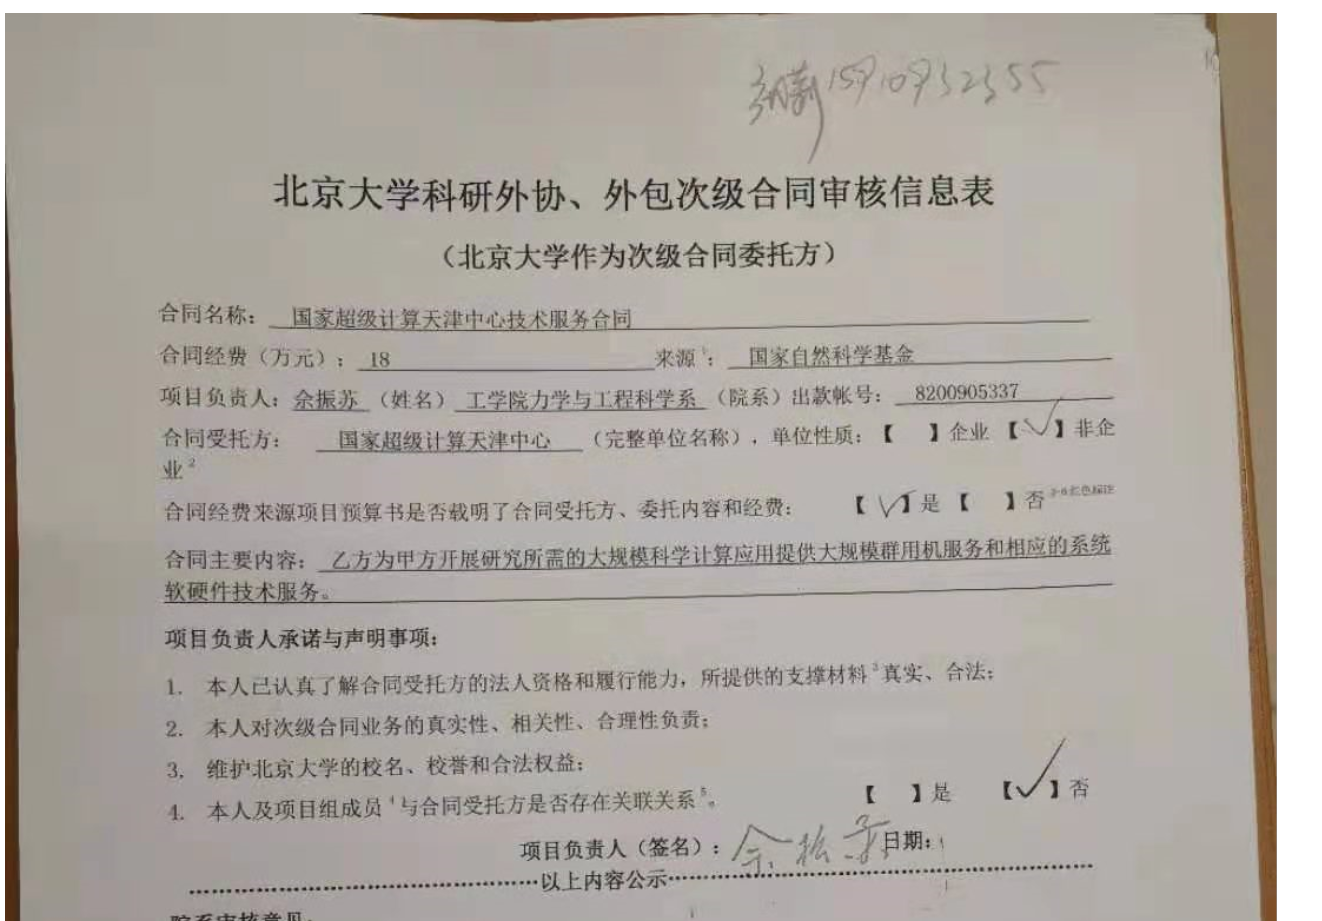 15910932355
北京大学科研外协、外包次级合同审核信息表
（北京大学作为次级合同委托方）
合同名称： 国家超级计算天津中心技术服务合同
合同经费（万元）：18 来源¹： 国家自然科学基金
项目负责人：佘振苏（姓名）工学院力学与工程科学系（院系）出款帐号： 8200905337
合同受托方： 国家超级计算天津中心 （完整单位名称），单位性质：【 】企业【√】非企
业²
合同经费来源项目预算书是否载明了合同受托方、委托内容和经费： 【√】是【 】否
合同主要内容： 乙方为甲方开展研究所需的大规模科学计算应用提供大规模群用机服务和相应的系统
软硬件技术服务。
项目负责人承诺与声明事项：
1. 本人已认真了解合同受托方的法人资格和履行能力，所提供的支撑材料³真实、合法；
2. 本人对次级合同业务的真实性、相关性、合理性负责；
3. 维护北京大学的校名、校誉和合法权益；
4. 本人及项目组成员⁴与合同受托方是否存在关联关系⁵。 【 】是 【√】否
项目负责人（签名）：佘振苏 日期：
以上内容公示
院系审核意见：